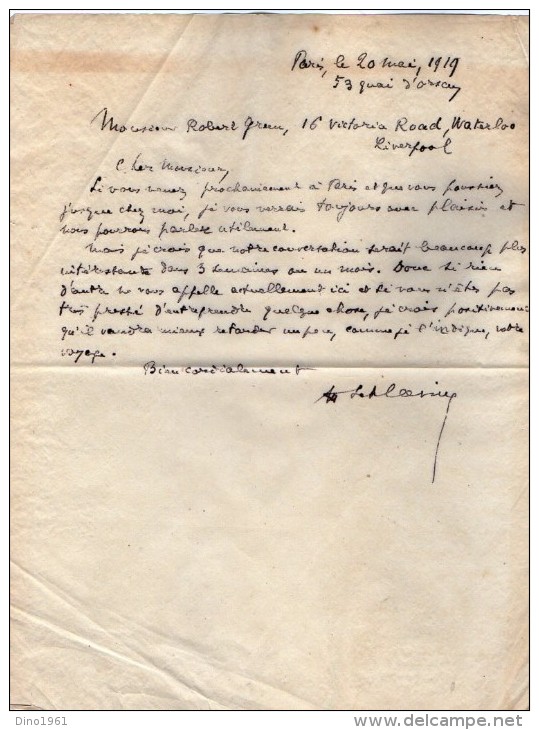 Paris, le 20 mai, 1919
53 quai d'orsay
Monsieur Robert Green, 16 Victoria Road, Waterloo
Liverpool
Cher Monsieur,
Si vous venez prochainement à Paris et que vous poussiez
jusque chez moi, je vous verrais toujours avec plaisir et
nous pourrons parler utilement.
Mais je crois que notre conversation serait beaucoup plus
intéressante dans 3 semaines ou un mois. Donc si rien
d'autre ne vous appelle actuellement ici et si vous n'êtes pas
très pressé d'entreprendre quelque chose, je crois positivement
qu'il vaudra mieux retarder un peu, comme je l'indique, votre
voyage.
Bien cordialement
Dino1961
delcampe.net